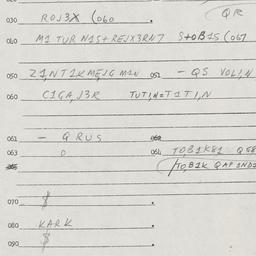 030 ROJ3X (060
QR
040 M1 TUR N1S+REJX3RN7 S+OB1S (067
050 Z1,NT1KMEJG M1N 052 - QS VOL1,N
060 C1GA,J3R TUT1,N=T1T1,N
061 - GRUS 062
063 0 064 TO,B1K81 Q58
065 (TO,B1K QAP 1ND2
070 $
080 KARK
090 $